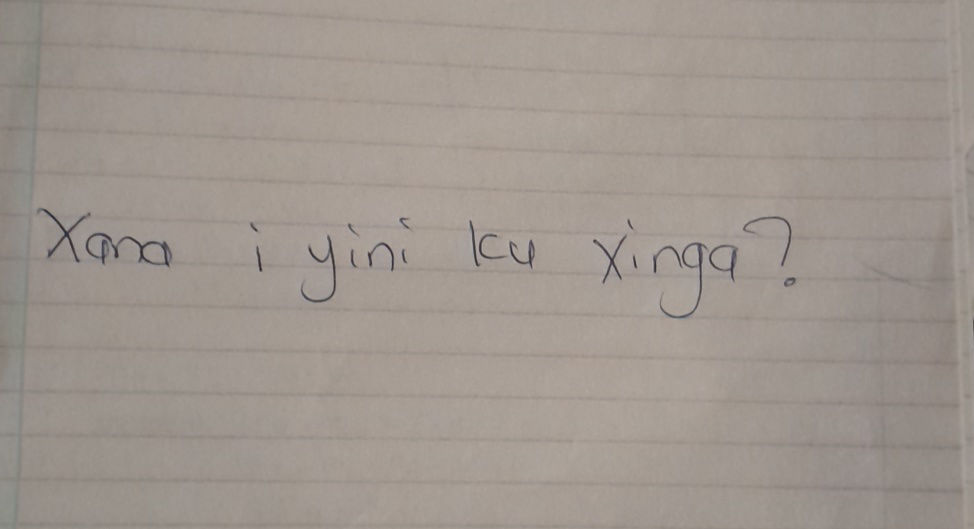 Xana i yini ku xinga?